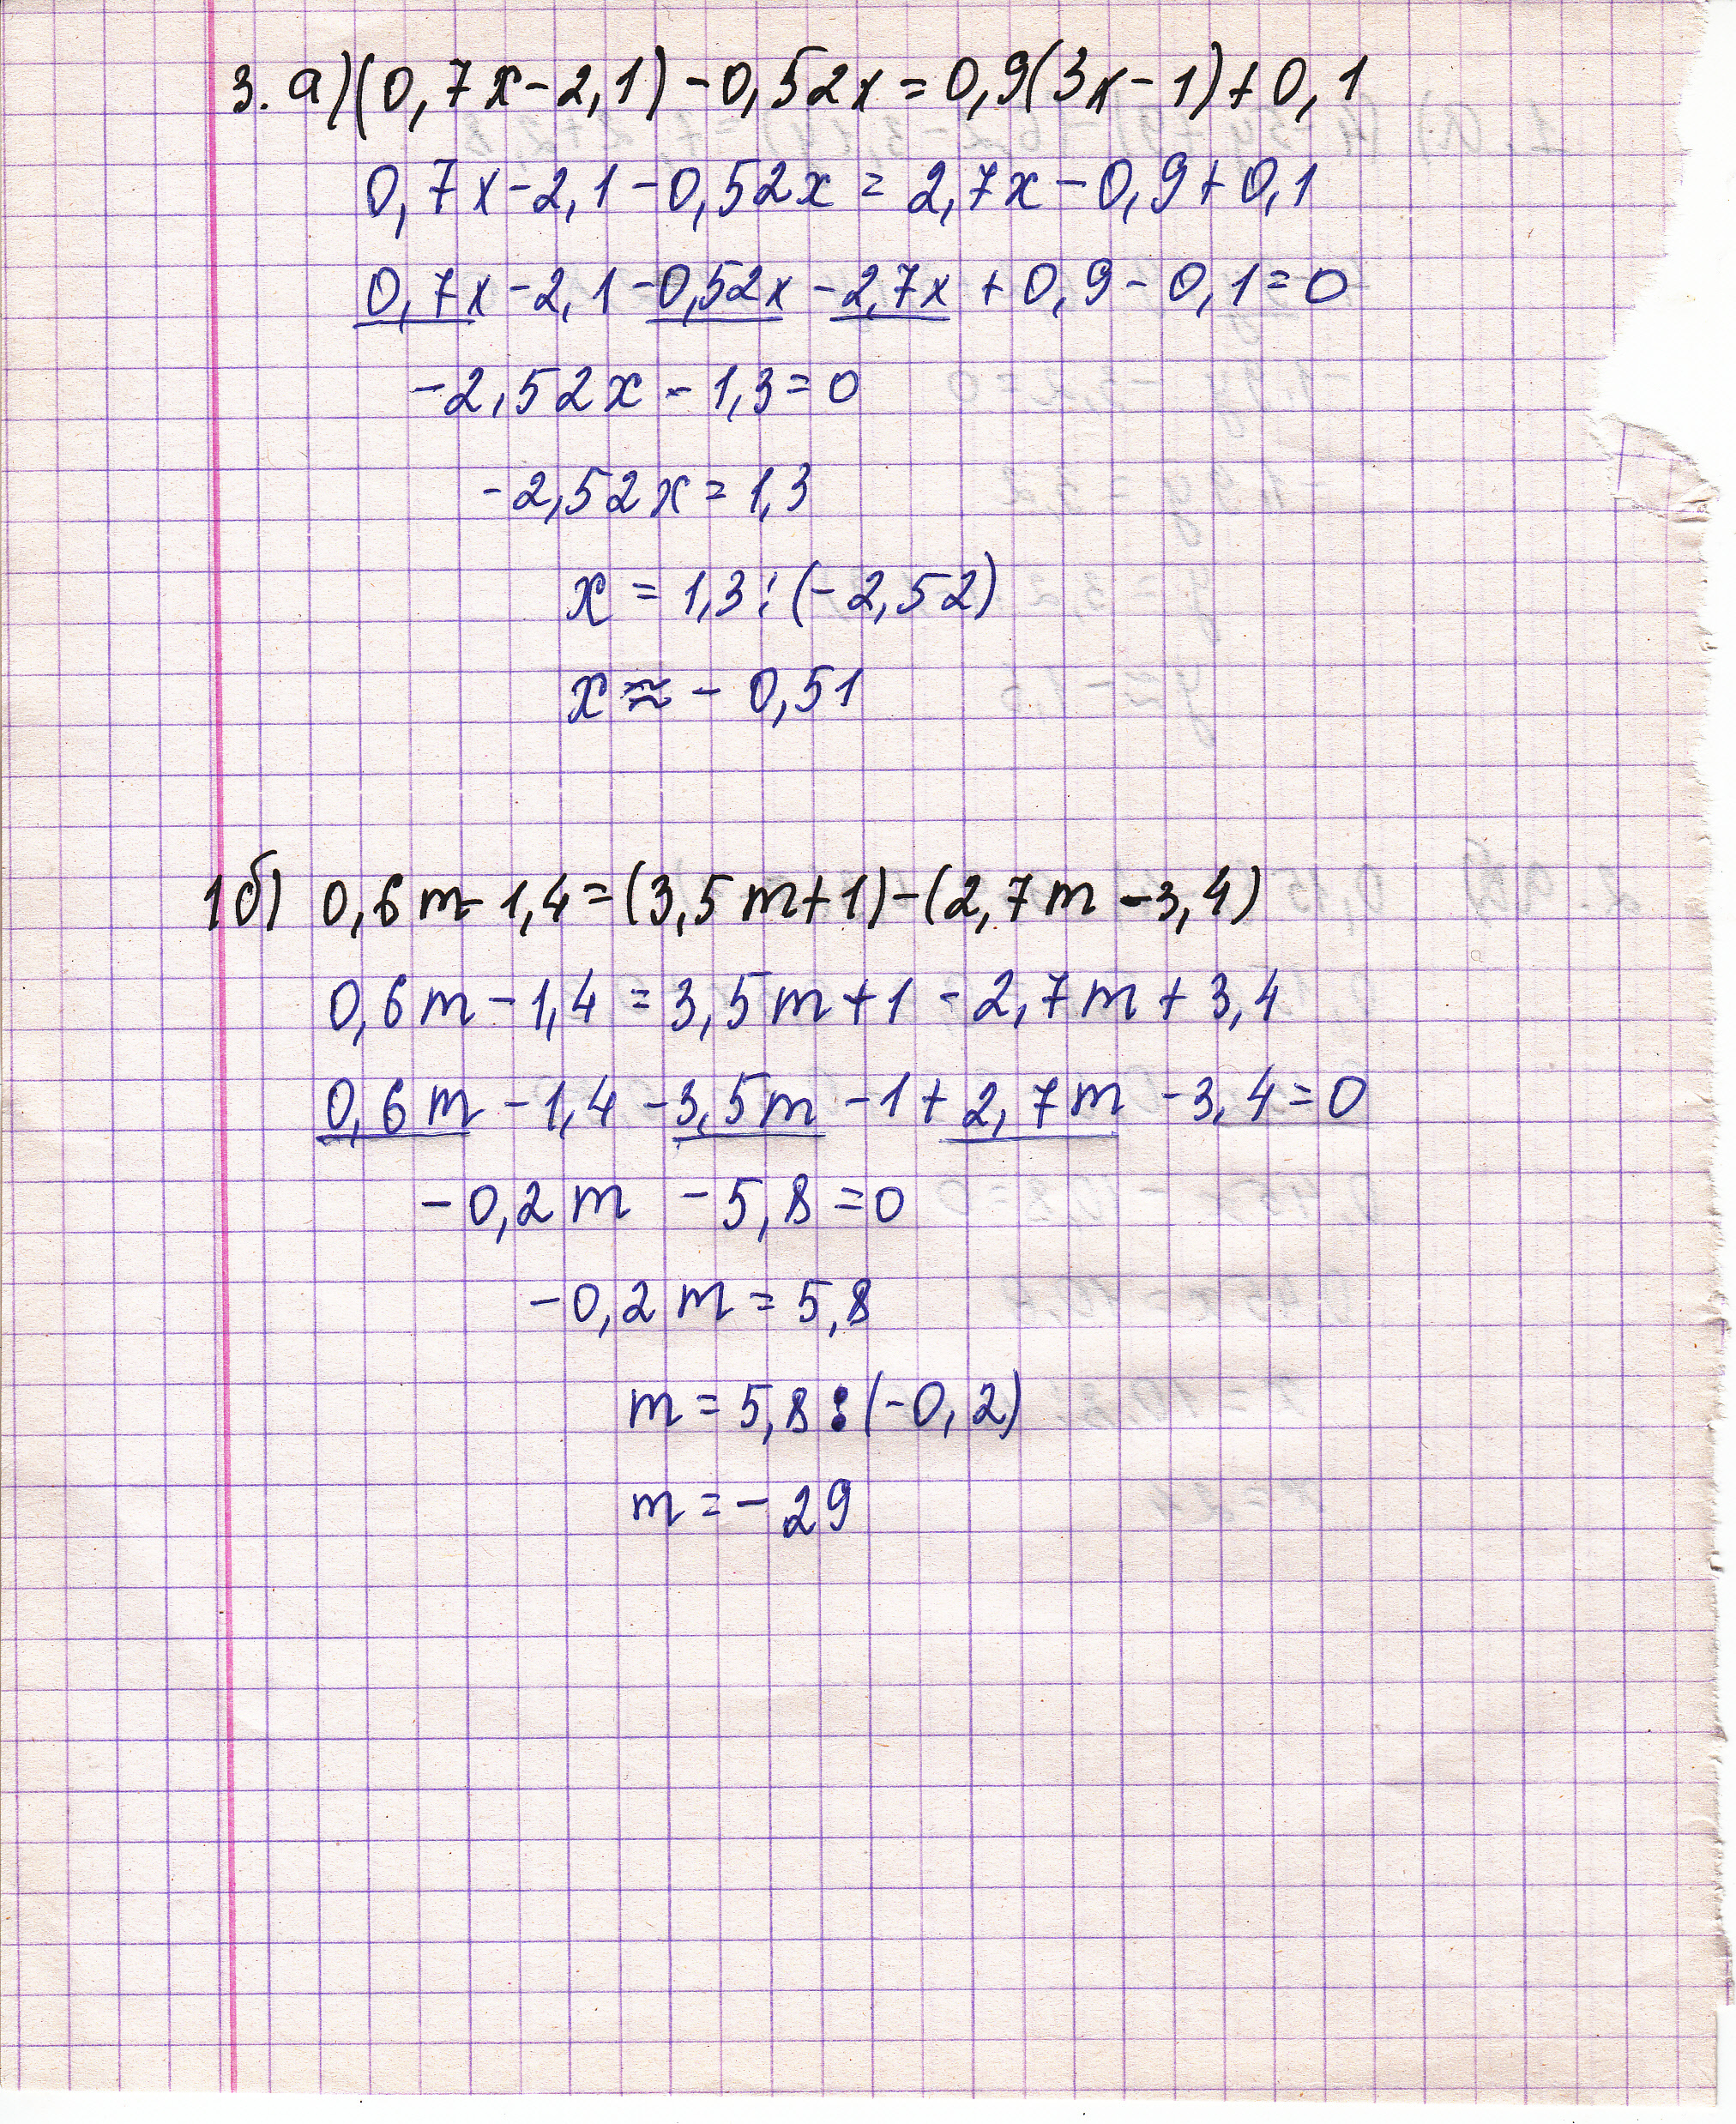 3. а) (0,7x-2,1)-0,52x=0,9(3x-1)+0,1
0,7x-2,1-0,52x=2,7x-0,9+0,1
0,7x-2,1-0,52x-2,7x+0,9-0,1=0
-2,52x-1,3=0
-2,52x=1,3
x=1,3:(-2,52)
x≈-0,51
1б) 0,6m-1,4=(3,5m+1)-(2,7m-3,4)
0,6m-1,4=3,5m+1-2,7m+3,4
0,6m-1,4-3,5m-1+2,7m-3,4=0
-0,2m-5,8=0
-0,2m=5,8
m=5,8:(-0,2)
m=-29